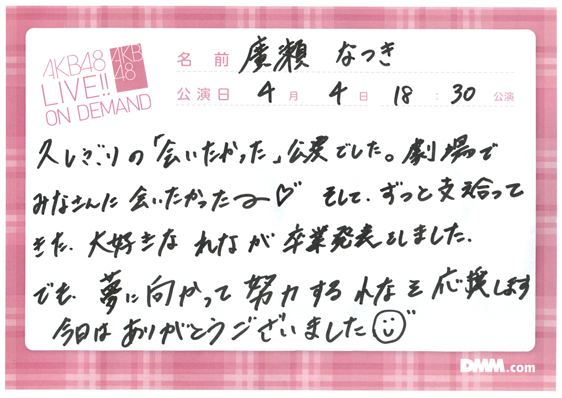 AKB48
LIVE!!
ON DEMAND
AKB
48
名前 廣瀬 なつき
公演日 4月 4日 18:30公演
久しぶりの「会いたかった」公演でした。劇場で
みなさんに会いたかった〜♡ そして、ずっと支え合って
きた、大好きな れなが 卒業発表をしました。
でも、夢に向かって努力するれなを応援します
今日はありがとうございました
DMM.com